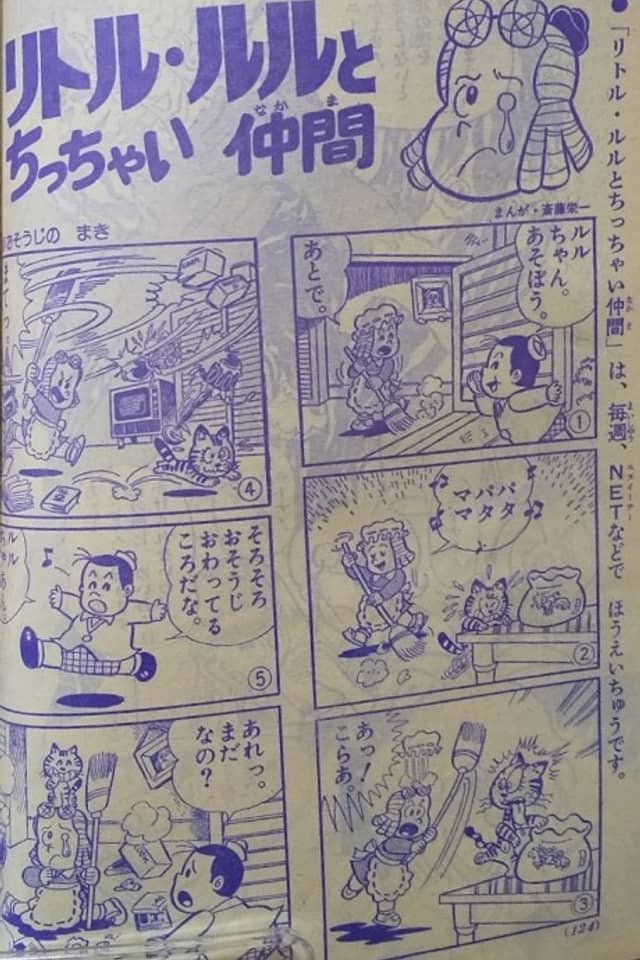 リトル・ルルと
ちっちゃい 仲間
なかま
まんが・斎藤栄一
●「リトル・ルルとちっちゃい仲間」は、毎週、NETなどで ほうえいちゅうです。
おそうじの まき
ルル
ちゃん。
あそぼう。
あとで。
①
パタ
パタ
ママ
②
あっ!
こらあ。
③
(124)
まてっ。
④
そろそろ
おそうじ
おわってる
ころだな。
⑤
あれっ。
まだ
なの?